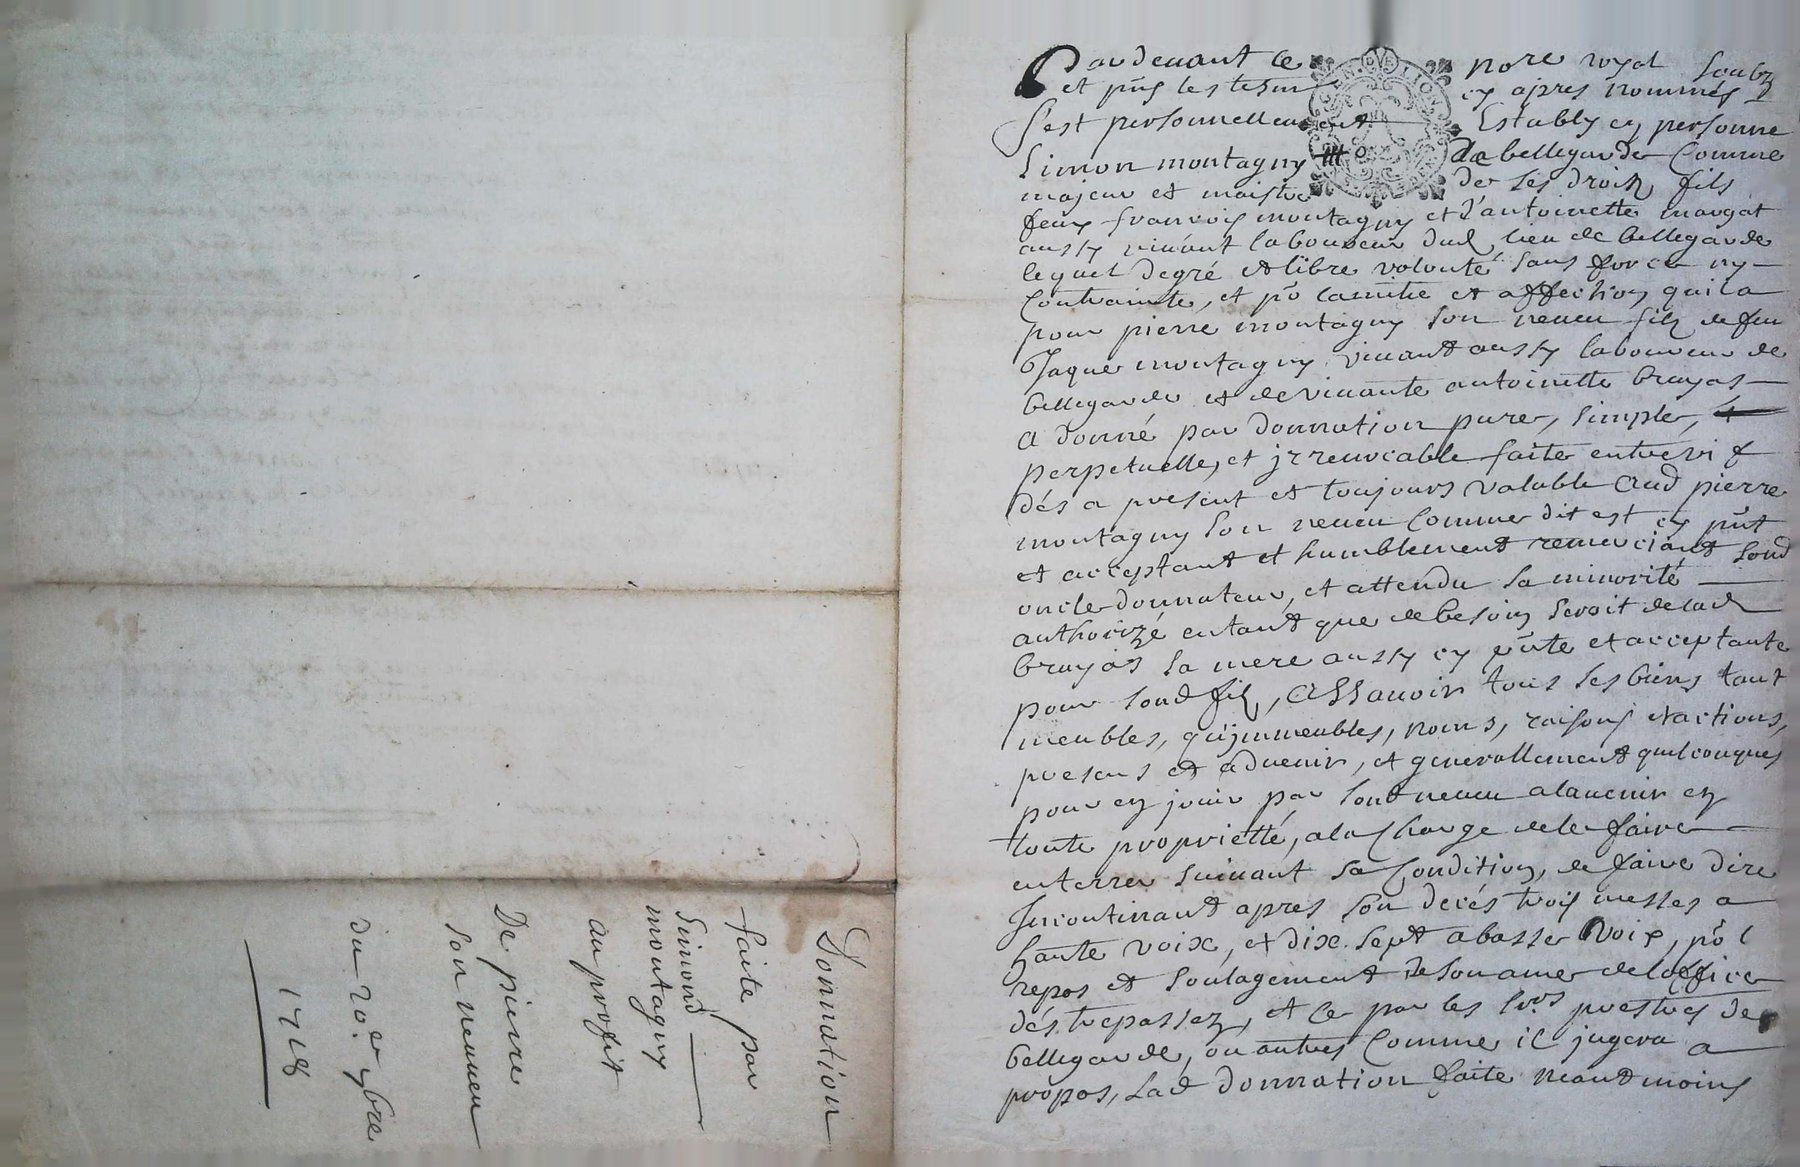 Pardevant le no.re royal soubz.
et pñs les tesm. cy apres nommés
s'est personnellement Estably en personne
Simon montagny de bellegarde Comme
majeur et maistre de ses droitz, fils
feux francois montagny et d'antoinette margat
aussy vivant laboureur dud. lieu de bellegarde
lequel de gré et libre volonté sans force ny
Contrainte, et pō lamitie et affection quil a
pour pierre montagny son neveu filz de feu
Jaque montagny vivant aussy laboureur de
bellegarde et de vivante antoinette bruyas
a donné par donnation pure, simple,
perpetuelle, et jrrevocable faite entre vif
dés a present et toujours valable aud pierre
montagny son neveu Comme dit est cy pñt
et acceptant et humblement remerciant sond
oncle donnateur, et attendu sa minorité
authorizé entant que de besoin seroit de lad
bruyas sa mere aussy cy pñte et acceptante
pour sond filz, assavoir tous ses biens tant
meubles, qu'jmmeubles, noms, raisons et actions,
presens et advenir, et generallement quelconques
pour en jouir par sond neveu alavenir en
toute proprietté, a la Charge de le faire
enterrer suivant sa Condition, de faire dire
Incontinant apres son decés trois messes a
haute voix, et dix sept a basse voix, pō l
repos et soulagement de son ame de l'office
dés trepassez, et ce par les srs. prestres de
bellegarde, ou autres Comme il jugera a
propos, Lad donnation faite neantmoins
Donnation
faite par
Simond
montagny
au profit
De pierre
son neuveu
du 20.e 9bre
1718